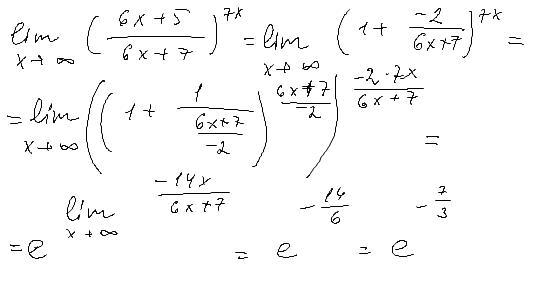 lim x→∞ ((6x+5)/(6x+7))^(7x) = lim x→∞ (1 + (-2)/(6x+7))^(7x) =
= lim x→∞ ((1 + 1/((6x+7)/(-2)))^((6x+7)/(-2)))^((-2·7x)/(6x+7)) =
= e^(lim x→∞ (-14x)/(6x+7)) = e^(-14/6) = e^(-7/3)